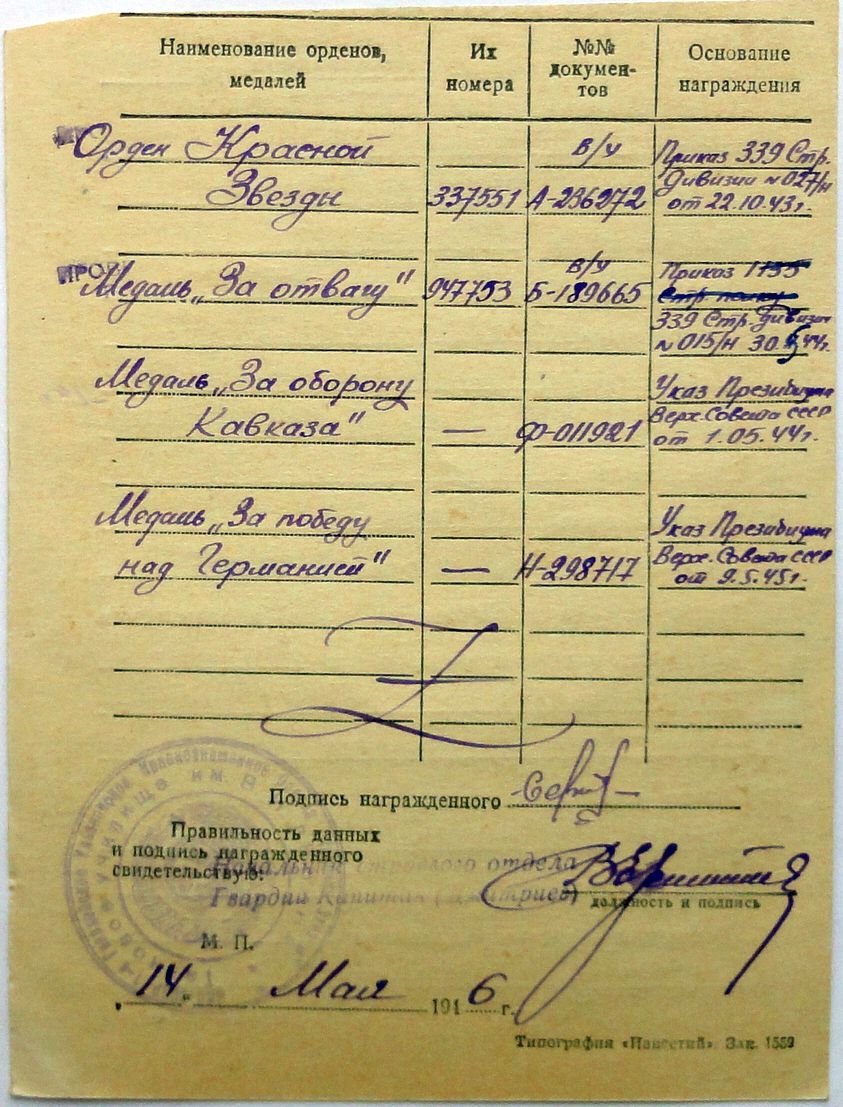 Наименование орденов, медалей
Их номера
№№ документов
Основание награждения
Орден Красной
Звезды
337551
в/у
А-236272
Приказ 339 Стр.
Дивизии №027/н
от 22.10.43г.
Медаль „За отвагу"
947753
в/у
Б-189665
Приказ 1135
Стр полку
339 Стр. дивизии
№015/н 30.5.44г.
Медаль „За оборону
Кавказа"
—
Ф-011921
Указ Президиума
Верх. Совета СССР
от 1.05.44г.
Медаль „За победу
над Германией"
—
Н-298717
Указ Президиума
Верх. Совета СССР
от 9.5.45г.
Подпись награжденного
Правильность данных
и подпись награжденного
свидетельствую:
Начальник строевого отдела
Гвардии Капитан (Дмитриев)
должность и подпись
М. П.
„14" Мая 1946 г.
Типография «Известий». Зак. 1559